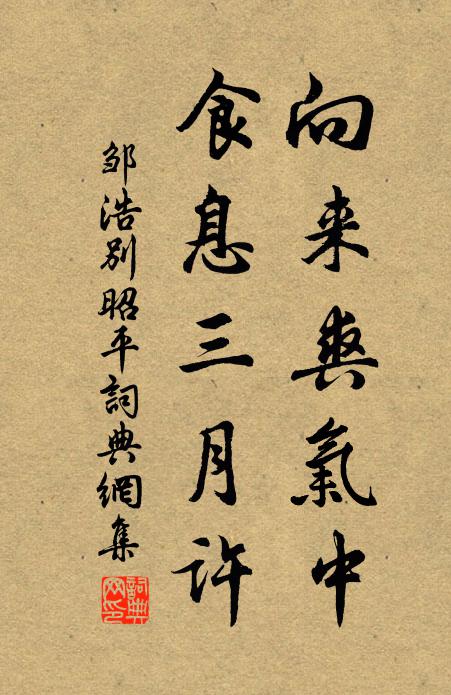 向来爽氣中
食息三月许
邹浩别昭平詞典網集
詞典网印